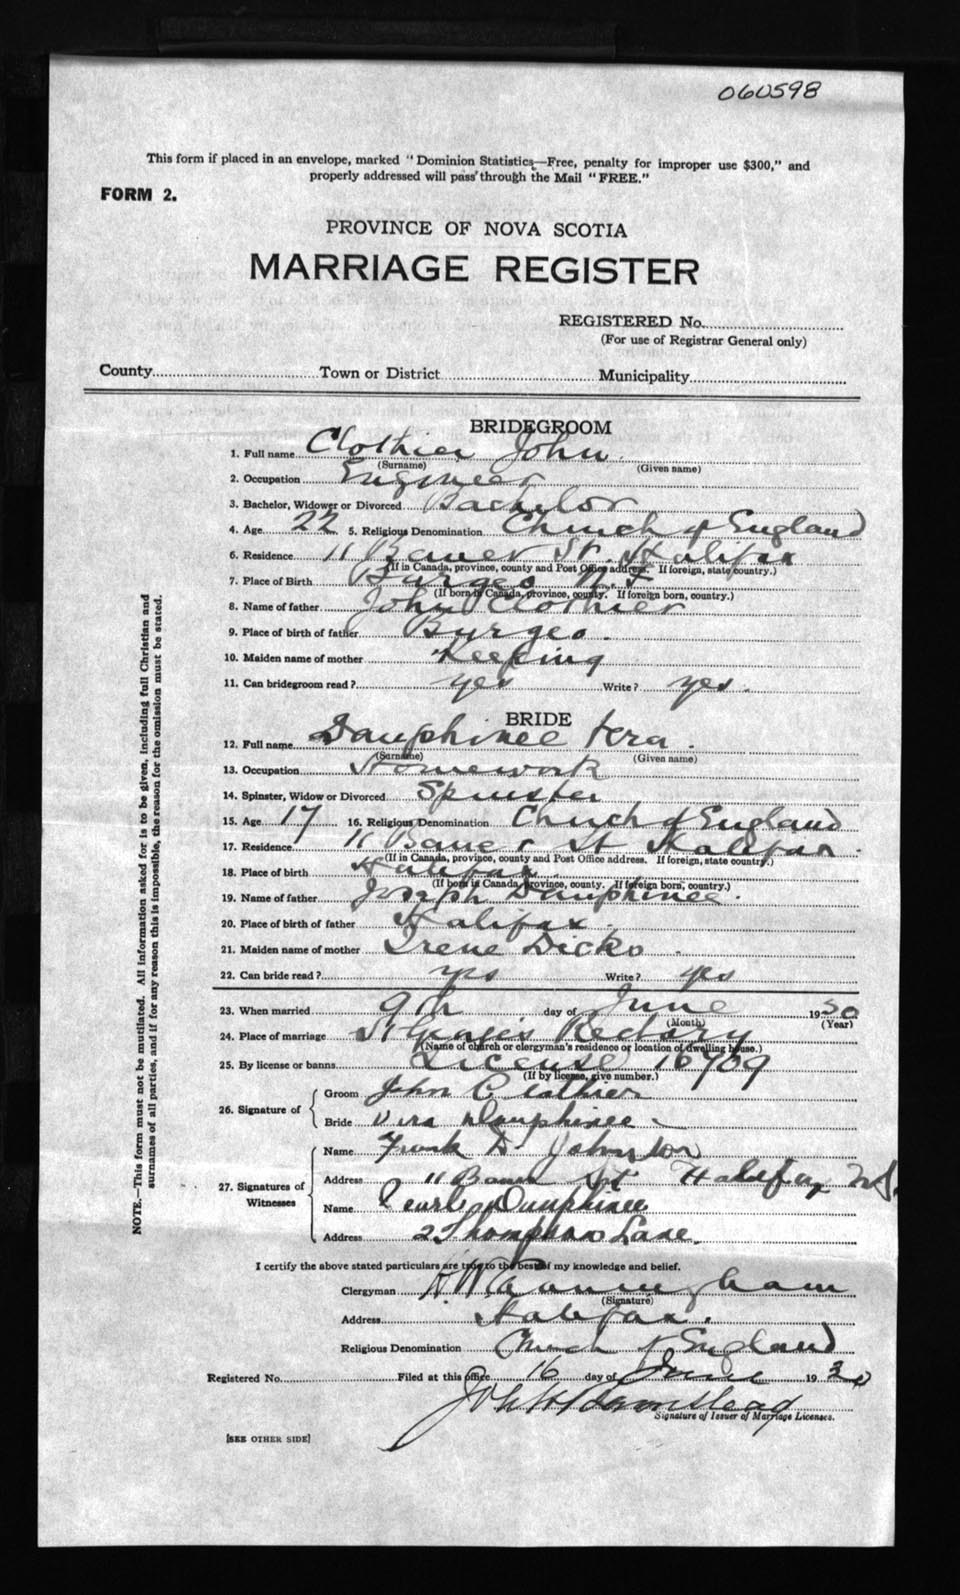 060598
This form if placed in an envelope, marked "Dominion Statistics—Free, penalty for improper use $300," and
properly addressed will pass through the Mail "FREE."
FORM 2.
PROVINCE OF NOVA SCOTIA
MARRIAGE REGISTER
REGISTERED No.
(For use of Registrar General only)
County Town or District Municipality
BRIDEGROOM
1. Full name Clothier John
(Surname) (Given name)
2. Occupation Engineer
3. Bachelor, Widower or Divorced Bachelor
4. Age 22 5. Religious Denomination Church of England
6. Residence 11 Bauer St. Halifax
(If in Canada, province, county and Post Office address. If foreign, state country.)
7. Place of Birth Burgeo N.F
(If born in Canada, province, county. If foreign born, country.)
8. Name of father John Clothier
9. Place of birth of father Burgeo.
10. Maiden name of mother Keeping
11. Can bridegroom read? yes Write? yes.
BRIDE
12. Full name Dauphinee Vera.
(Surname) (Given name)
13. Occupation Homework
14. Spinster, Widow or Divorced Spinster
15. Age 17 16. Religious Denomination Church of England
17. Residence 11 Bauer St Halifax.
(If in Canada, province, county and Post Office address. If foreign, state country.)
18. Place of birth Halifax.
(If born in Canada, province, county. If foreign born, country.)
19. Name of father Joseph Dauphinee.
20. Place of birth of father Halifax.
21. Maiden name of mother Irene Dicks.
22. Can bride read? yes Write? yes
23. When married 9th day of June 1930
(Month) (Year)
24. Place of marriage St George's Rectory
(Name of church or clergyman's residence or location of dwelling house.)
25. By license or banns License 10709
(If by license, give number.)
26. Signature of
Groom John Clothier
Bride Vera Dauphinee
27. Signatures of
Witnesses
Name Frank D Johnston
Address 11 Bauer St Halifax N.S.
Name Pearl Dauphinee
Address 2 Thompson Lane.
I certify the above stated particulars are true to the best of my knowledge and belief.
Clergyman H W Cunningham
(Signature)
Address Halifax.
Religious Denomination Church of England
Registered No. Filed at this office 16 day of June 1930
Signature of Issuer of Marriage Licenses.
[SEE OTHER SIDE]
NOTE.—This form must not be mutilated. All information asked for is to be given, including full Christian and
surnames of all parties, and if for any reason this is impossible, the reason for the omission must be stated.